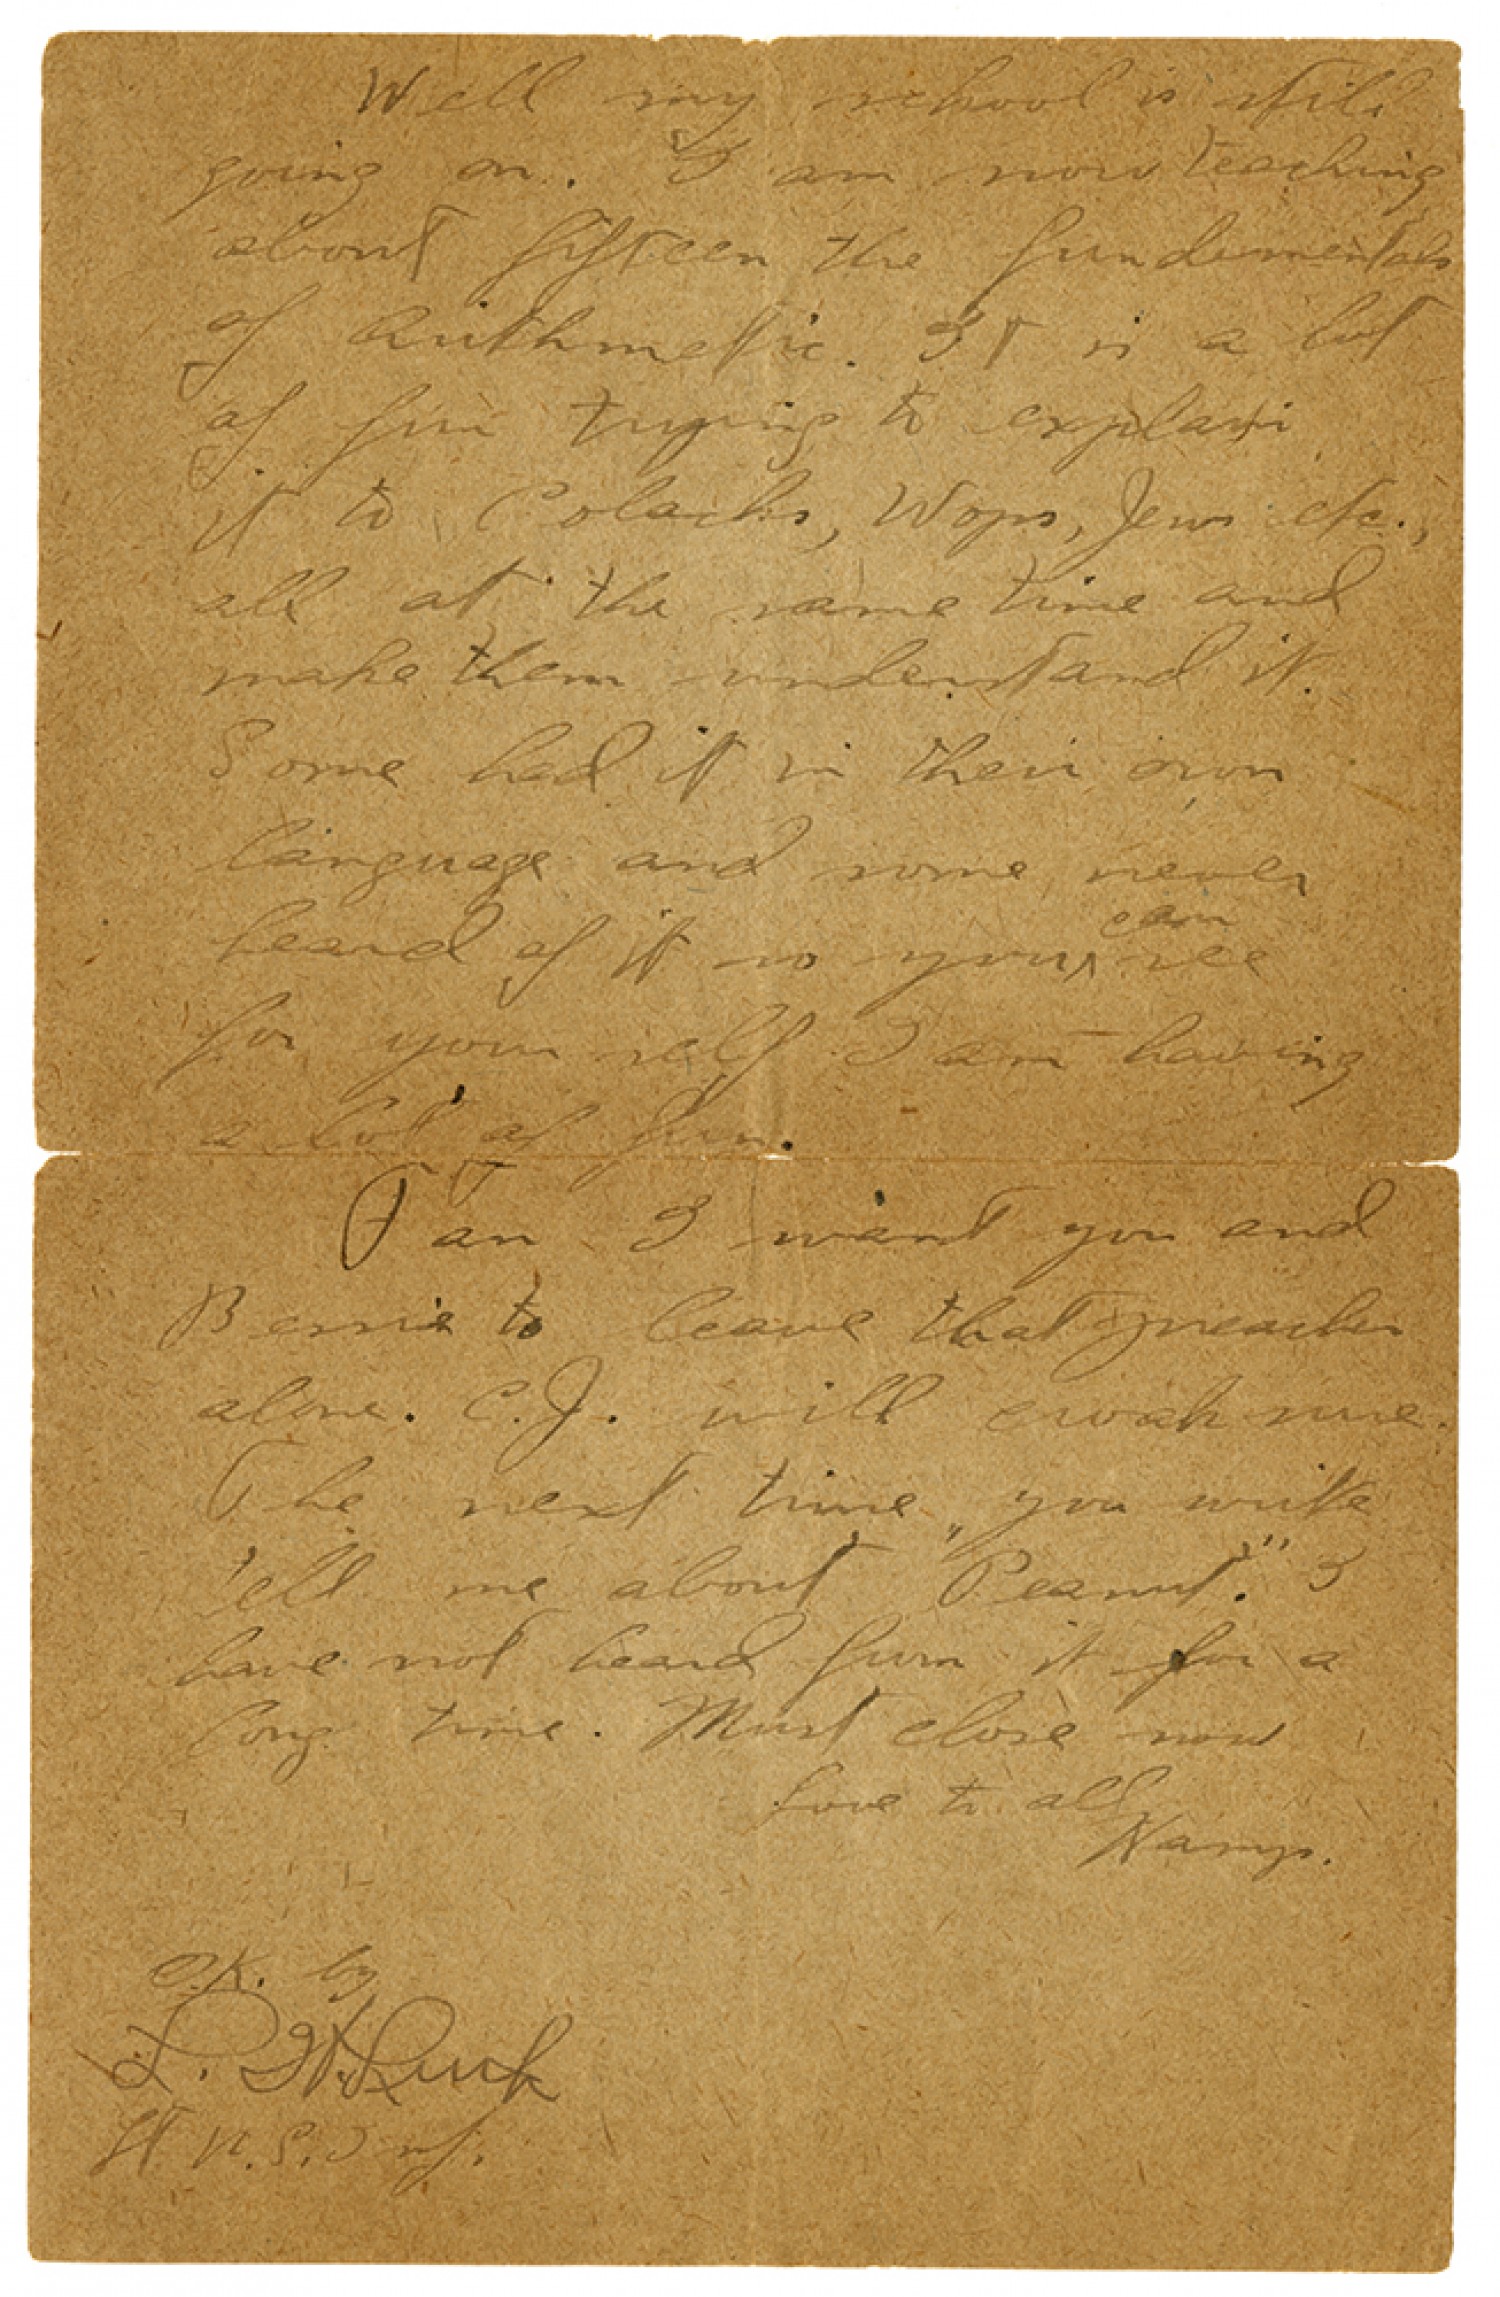 Well my school is still
going on. I am now teaching
about fifteen the fundementals
of arithmetic. It is a lot
of fun trying to explain
it to Polacks, Wops, Jews etc.,
all at the same time and
make them understand it.
Some had it in their own
language and some never
heard of it so you can see
for your self I am having
a lot of fun.
Fan I want you and
to leave that preacher
alone. C.J. will croak sure.
The next time you write
tell me about "Peanut." I
have not heard fum it for a
long time. Must close now
Love to all
O.K. by
Lt. N.S. Inf.